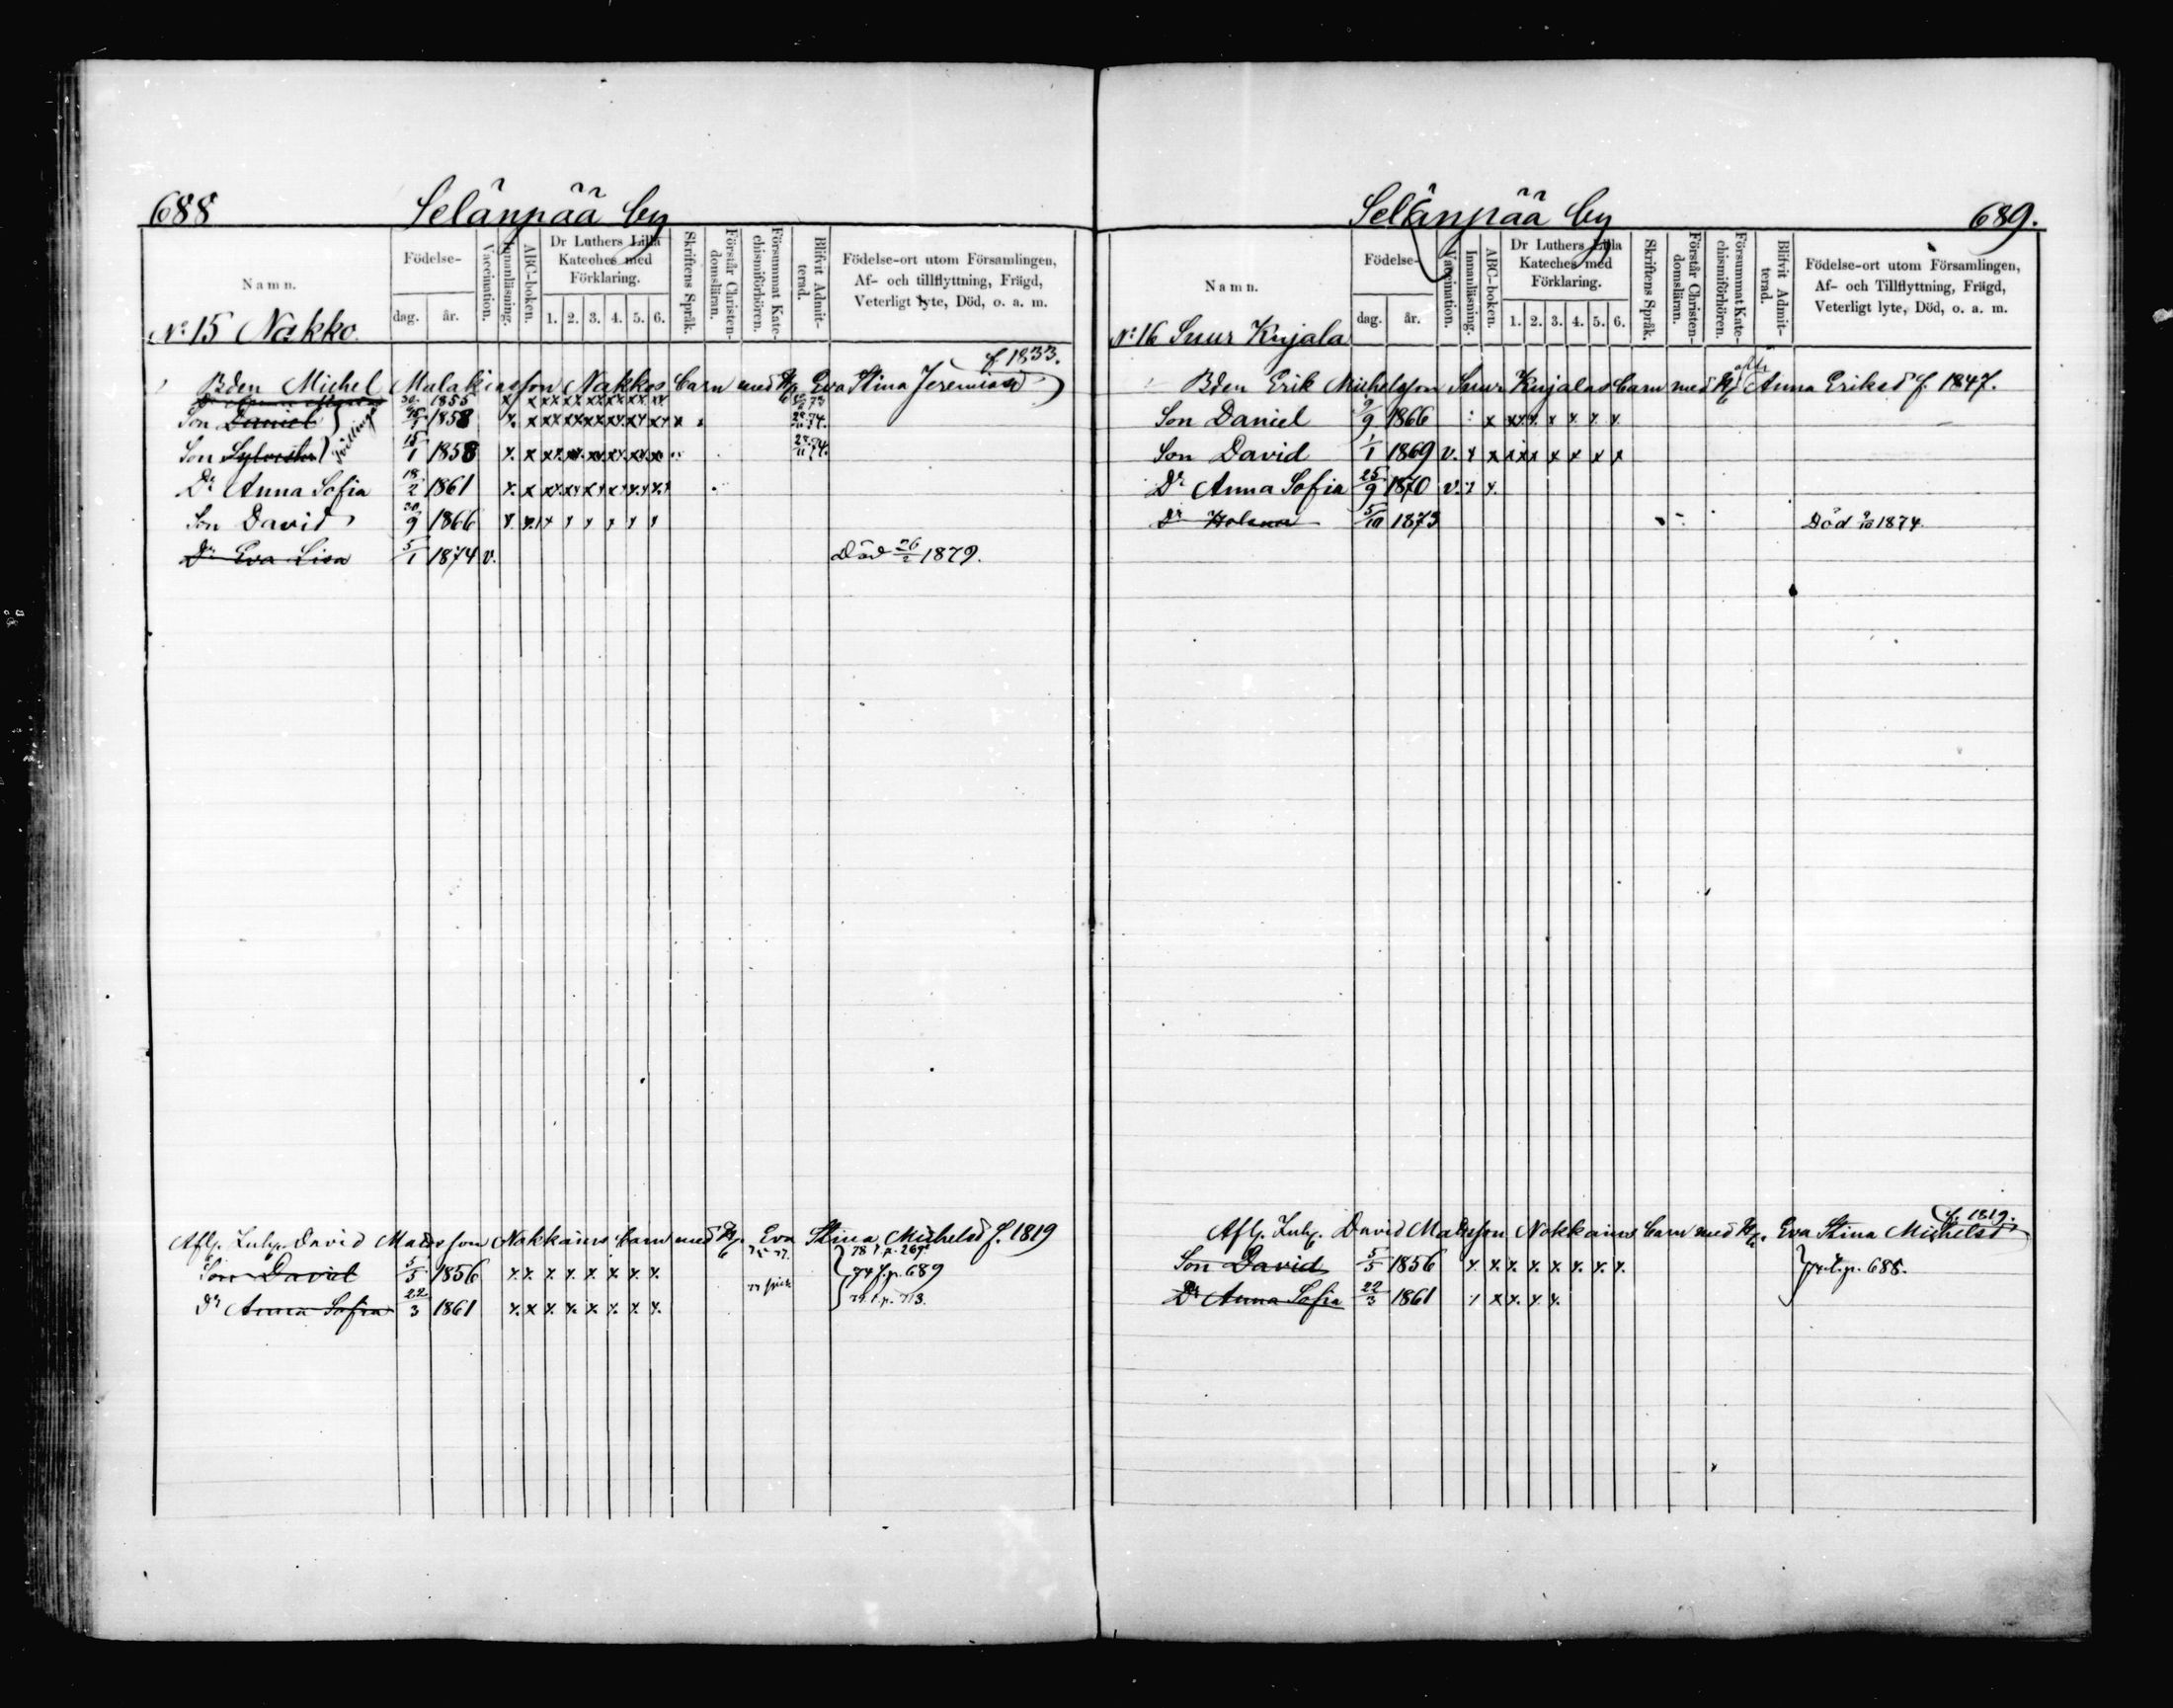 688 Selänpää by
Namn. Födelse- dag. år. Vaccination. Innanläsning. ABC-boken. Dr Luthers Lilla Kateches med Förklaring. 1. 2. 3. 4. 5. 6. Skriftens Språk. Förstår Christendomsläran. Försummat Katechismiförhören. Blifvit Admitterad. Födelse-ort utom Församlingen, Af- och tillflyttning, Frägd, Veterligt lyte, Död, o. a. m.
No 15 Nakko.
Bden Michel Malakiasson Nakkos barn med H. Eva Stina Jeremiasd f. 1833.
Dr Anna 1855
Son Daniel 15/1 1858 x x x x x x x x x 74.
Son Sylvester 15/1 1858 x x x x x x x x 74.
Dr Anna Sofia 18/2 1861 x x x x x x x x
Son David 9 1866 x x x x x x x
Dr Eva Lisa 5/1 1874 v. Död 26/2 1879.
Afl. Inh. David Madsson Nakkains barn med H. Eva Stina Michelsd f. 1819
Son David 5/5 1856 x x x x x x x x 74 f. p. 689
Dr Anna Sofia 22/3 1861 x x x x x x x x
Selänpää by 689.
Namn. Födelse- dag. år. Vaccination. Innanläsning. ABC-boken. Dr Luthers Lilla Kateches med Förklaring. 1. 2. 3. 4. 5. 6. Skriftens Språk. Förstår Christendomsläran. Försummat Katechismiförhören. Blifvit Admitterad. Födelse-ort utom Församlingen, Af- och Tillflyttning, Frägd, Veterligt lyte, Död, o. a. m.
No 16 Suur Kujala
Bden Erik Michelsson Suur Kujalas barn med H. Anna Eriksd f. 1847.
Son Daniel 9/9 1866 x x x x x x x
Son David 1/1 1869 v. x x x x x x x x
Dr Anna Sofia 25/9 1870 v. x x
Dr Helena 5/10 1873 Död 1874.
Afl. Inh. David Madsson Nakkains barn med H. Eva Stina Michelsd f. 1819.
Son David 5/5 1856 x x x x x x x x p. 688.
Dr Anna Sofia 22/3 1861 x x x x x